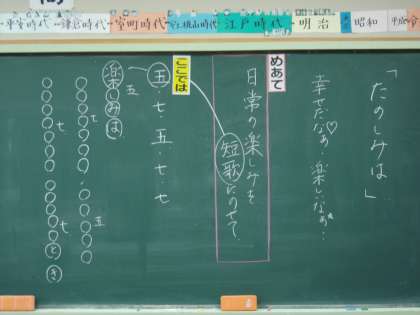 平安時代
鎌倉時代
室町時代
安土桃山時代
江戸時代
明治
大正
昭和
平成
「たのしみは」
幸せだなあ♡
楽しいなあ…
めあて
日常の楽しみを
短歌にのせて
ここでは
五・七・五・七・七
楽しみは
五
○○○○○○○
七
○○○○○
五
○○○○○○○
七
○○○○○とき
七